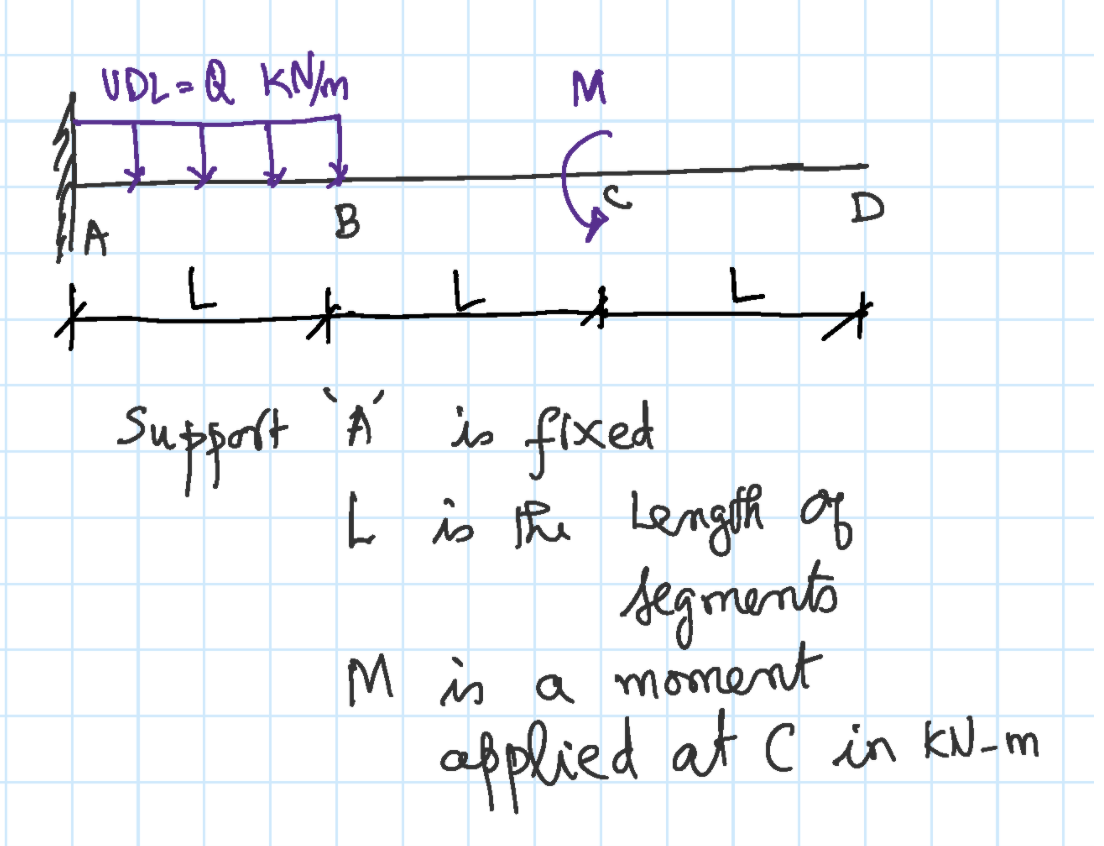 UDL = Q KN/m
M
A
B
C
D
L
L
L
Support 'A' is fixed
L is the Length of
segments
M is a moment
applied at C in kN-m